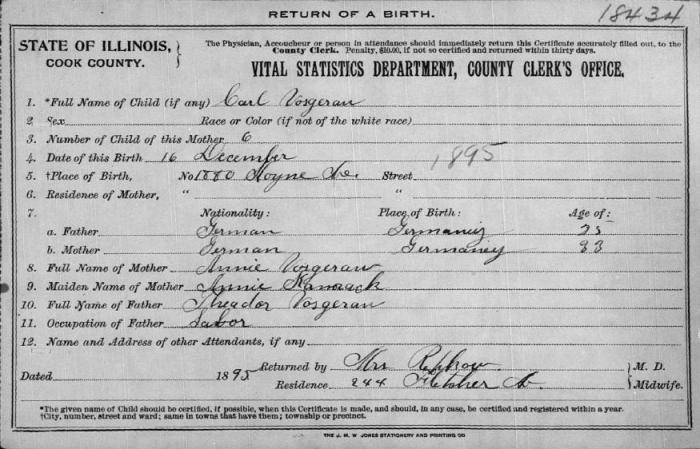 RETURN OF A BIRTH.
18434
STATE OF ILLINOIS,
COOK COUNTY.
The Physician, Accoucheur or person in attendance should immediately return this Certificate accurately filled out, to the
County Clerk. Penalty, $10.00, if not so certified and returned within thirty days.
VITAL STATISTICS DEPARTMENT, COUNTY CLERK'S OFFICE.
1. *Full Name of Child (if any) Carl Vosgerau
2. Sex Race or Color (if not of the white race)
3. Number of Child of this Mother 6
4. Date of this Birth 16 December 1895
5. †Place of Birth, No 1880 Hoyne Av. Street
6. Residence of Mother, " "
7. Nationality: Place of Birth: Age of:
a. Father German Germaniy 35
b. Mother German Germaniey 33
8. Full Name of Mother Annie Vosgerau
9. Maiden Name of Mother Annie
10. Full Name of Father Theador Vosgerau
11. Occupation of Father Labor
12. Name and Address of other Attendants, if any
Dated 1895 Returned by Mrs M. D.
Residence 244 Fletsher Midwife.
*The given name of Child should be certified, if possible, when this Certificate is made, and should, in any case, be certified and registered within a year.
†City, number, street and ward; same in towns that have them; township or precinct.
THE J. M. W. JONES STATIONERY AND PRINTING CO